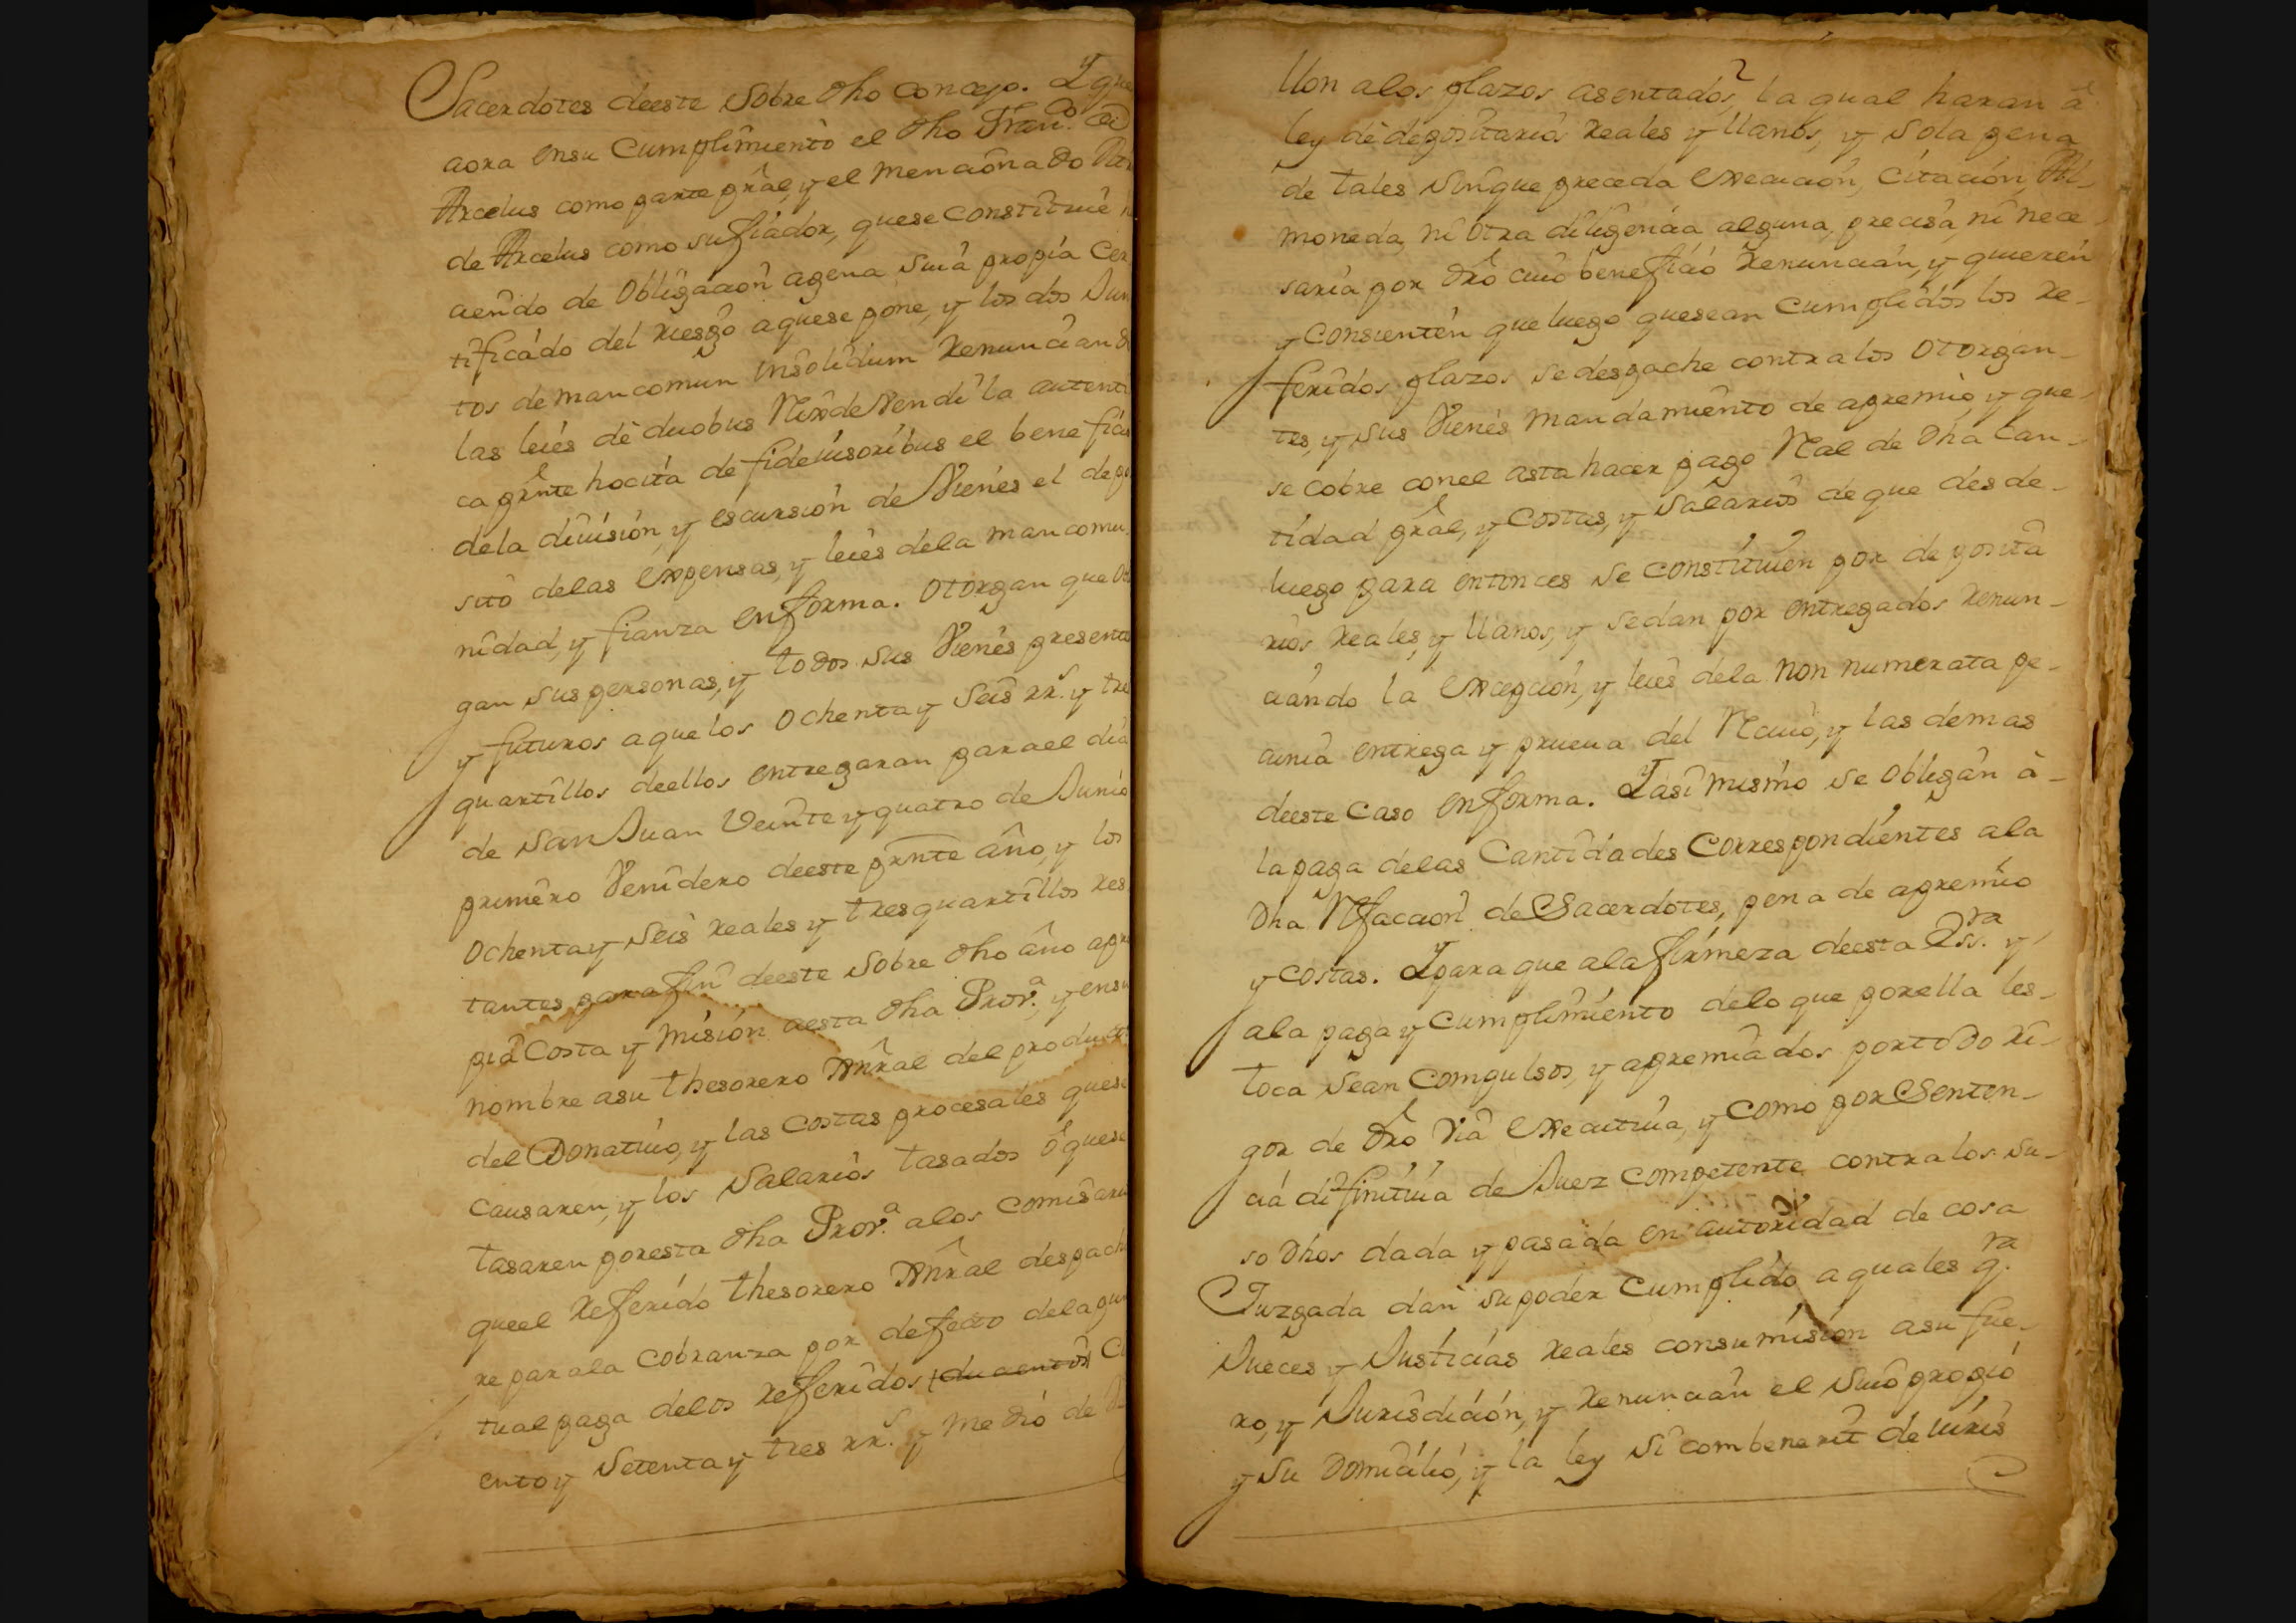 Sacerdotes deeste sobre dho concejo. Y que
aora ensu Cumplimiento el dho Fran.co de
Arcelus como parte pral, y el mencionado
de Arcelus como sufiador, quese constituie
ciendo de Obligacion agena suia propia Cer
tificado del riesgo aquese pone, y los dos Jun
tos demancomun insolidum Renuncian
las leies de duobus Reix de vendi la autenti
ca prnte hocita de fideiusoribus el benefici
dela diuision, y escursion de Vienes el depo
sito delas expensas, y leies dela mancomu
nidad, y fianza enforma. Otorgan que
gan suspersonas, y todos sus Vienes presente
y futuros aquelos ochentay seis rr.s y tre
quartillos deellos entregaran parael dia
de San Juan Veinte y quatro de Junio
primero Venidero deeste prnte año, y los
Ochentay seis reales y tresquartillos res
tantes parafin deeste sobre dho año apro
pia Costa y mision aesta dha Prov.a y ensu
nombre asu thesorero Annral del producto
del Donatiuo, y las costas procesales quese
causaren, y los salarios tasados o quese
tasaren poresta dha Prov.a alos comisari
queel Referido thesorero Annral despach
re parala cobranza por defecto delapun
tual paga delos Referidos ducientos Ci
entoy Setentay tres rr.s y medio de
llon alos plazos asentados, la qual haran à
ley de depositarios reales y llanos, y sola pena
de tales sinque preceda execucion, Citacion, Al-
moneda, ni otra diligencia alguna, precisa, ni nece-
saria por dro cuio beneficio Renuncian, y quieren
y consienten queluego quesean cumplidos los re-
feridos plazos se despache contralos otorgan-
tes, y sus Vienes mandamiento de apremio, y que-
se cobre conel asta hacer pago Real de dha Can-
tidad pral, y costas, y salarios deque desde-
luego para entinces se constituien por deposita
rios reales, y llanos, y sedan por entregados renun-
ciando la excepcion, y leies dela non numerata pe-
cunia entrega y prueua del Reciuo, y las demas
deeste caso enforma. Y asimismo se obligan à-
lapaga delas Cantidades Correspondientes ala
dha Refaccion de Sacerdotes, pena de apremio
y costas. Ypara que ala firmeza deesta Ess.ra y
ala paga y cumplimiento delo que porella les-
toca sean compulsos, y apremiados portodo ri-
gor de dro via executiua, y como por Senten-
cia difinitiua de Juez competente contralos su-
so dhos dada y pasada en autoridad de cosa
Juzgada dan supoder cumplido aquales q.ra
Jueces y Justicias reales consumision asu fue-
ro, y Jurisdicion, y Renuncian el suio propio
y su Domicilio, y la ley si combenerit de iuris